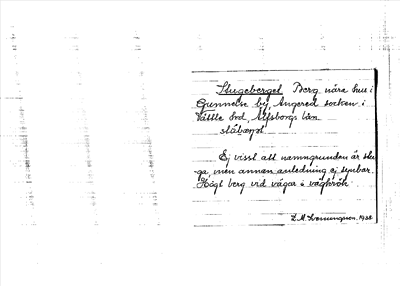 Stugeberget Berg nära hus i
Gunnelse by, Angered socken i
Vättle hd, Älfsborgs län
Ej visst att namngrunden är stu
ga, men annan anledning ej synbar.
Högt berg vid vägar o vägkrök
1938